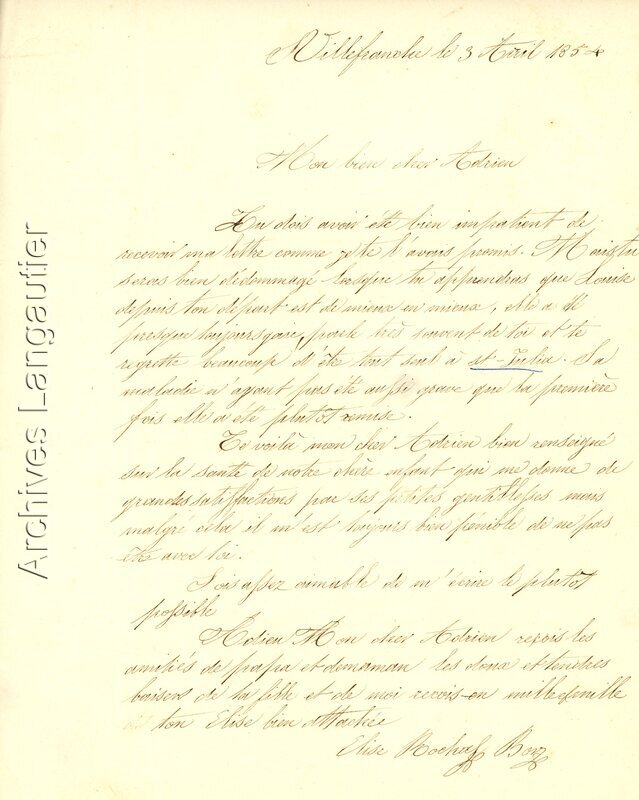 Villefranche le 3 Avril 1854
Mon bien cher Adrien
Tu dois avoir été bien impatient de
recevoir ma lettre comme je te l'avais promis. Mais tu
seras bien dédommagé lorsque tu apprendras que Louise
depuis ton départ est de mieux en mieux, elle a été
presque toujours gaie, parle très souvent de toi et te
regrette beaucoup d'être tout seul à st-Julia. Sa
maladie n'ayant pas été aussi grave que la première
fois elle a été plutôt remise.
Te voilà mon cher Adrien bien renseigné
sur la santé de notre chère enfant qui me donne de
grandes satisfactions par ses petites gentillesses mais
malgré cela il m'est toujours bien pénible de ne pas
être avec toi.
Sois assez aimable de m'écrire le plutôt
possible
Adieu Mon cher Adrien reçois les
amitiés de papa et de maman les doux et tendres
baisers de ta fille et de moi reçois-en mille & mille
ton Elise bien attachée
Elise
Archives Langautier